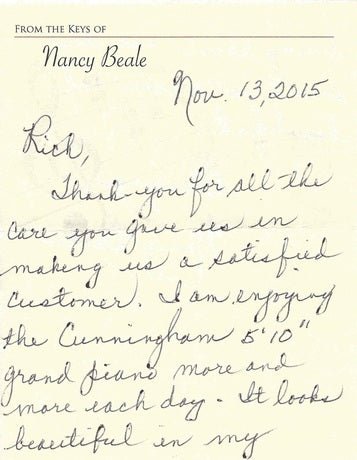 FROM THE KEYS OF
Nancy Beale
Nov. 13, 2015
Rich,
Thank-you for all the
care you gave us in
making us a satisfied
customer. I am enjoying
the Cunningham 5'10"
grand piano more and
more each day. It looks
beautiful in my